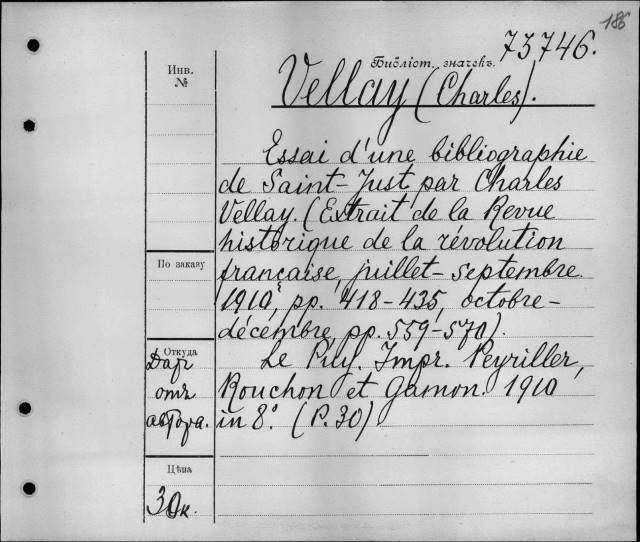 186
73746.
Библіот. значекъ.
Инв.
№
Vellay (Charles).
Essai d'une bibliographie
de Saint-Just, par Charles
Vellay. (Extrait de la Revue
historique de la révolution
По заказу
française, juillet-septembre
1910, pp. 418-435, octobre-
décembre, pp. 559-570).
Откуда
Le Puy. Impr. Peyriller,
Даръ
отъ
автора.
Rouchon et Gamon. 1910
in 8º. (P. 30)
Цѣна
30к.